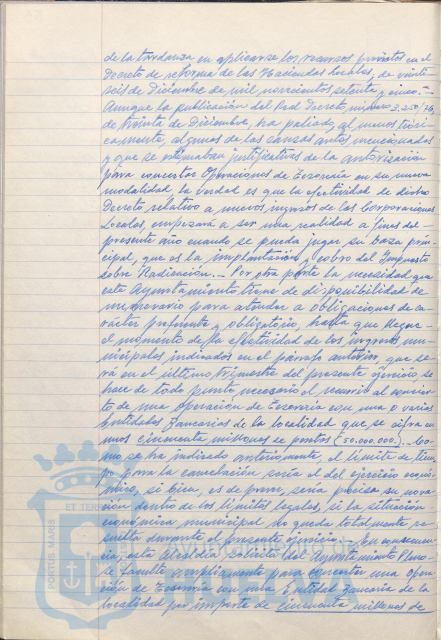 de la tardanza en aplicarse los recursos previstos en el
Decreto de reforma de las Haciendas Locales, de veinti-
seis de Diciembre de mil novecientos setenta y cinco.-
Aunque la publicación del Real Decreto número 3.250/76,
de treinta de Diciembre, ha paliado, al menos teóri-
camente, algunas de las causas antes mencionadas
y que se estimaban justificativas de la autorización
para concertar Operaciones de Tesorería en su nueva
modalidad la verdad es que la efectividad de dicho
Decreto relativo a nuevos ingresos de las Corporaciones
Locales, empezará a ser una realidad a fines del
presente año cuando se pueda jugar su baza prin-
cipal, que es la implantación y cobro del Impuesto
sobre Radicación.- Por otra parte la necesidad que
este Ayuntamiento tiene de disponibilidad de
numerario para atender a obligaciones de ca-
rácter preferente y obligatorio, hasta que llegue
el momento de la efectividad de los ingresos mu-
nicipales indicados en el párrafo anterior, que se-
rá en el último trimestre del presente ejercicio, se
hace de todo punto necesario el recurrir al concier-
to de una Operación de Tesorería con una o varias
Entidades Bancarias de la localidad que se cifra en
unos cincuenta millones de pesetas (50.000.000).- Co-
mo se ha indicado anteriormente, el límite de tiem-
po para la cancelación sería el del ejercicio econó-
mico, si bien, es de prever, sería precisa su nova-
ción dentro de los límites legales, si la situación
económica municipal no queda totalmente re-
suelta durante el presente ejercicio.- En consecuen-
cia, esta Alcaldía solicita del Ayuntamiento Pleno
se faculte ampliamente para concertar una Opera-
ción de Tesorería con una Entidad Bancaria de la
localidad por importe de cincuenta millones de
PORTUS MARIS
ET TERR